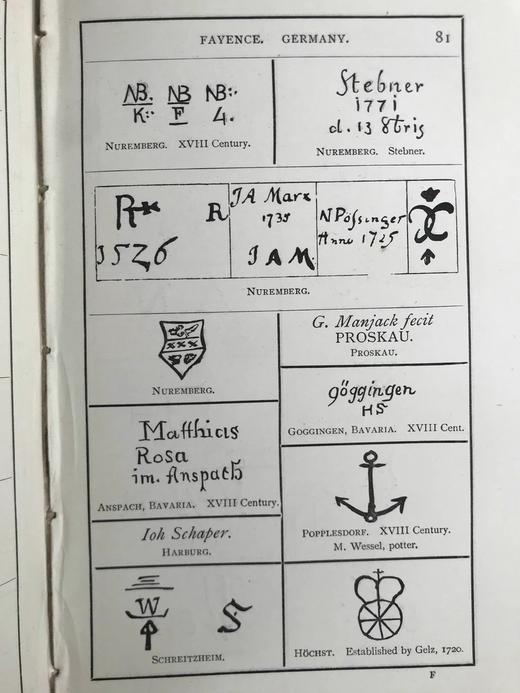 FAYENCE. GERMANY. 81
NB. NB NB:
K: F 4.
NUREMBERG. XVIII Century.
Stebner
1771
d. 13 8tris
NUREMBERG. Stebner.
R R
1526
JA Marx
1735
I A M.
N Pössinger
Anno 1725
NUREMBERG.
NUREMBERG.
G. Manjack fecit
PROSKAU.
PROSKAU.
göggingen
HS
GOGGINGEN, BAVARIA. XVIII Cent.
Matthias
Rosa
im. Anspach
ANSPACH, BAVARIA. XVIII Century.
POPPLESDORF. XVIII Century.
M. Wessel, potter.
Ioh Schaper.
HARBURG.
W S
SCHREITZHEIM.
HÖCHST. Established by Gelz, 1720.
F